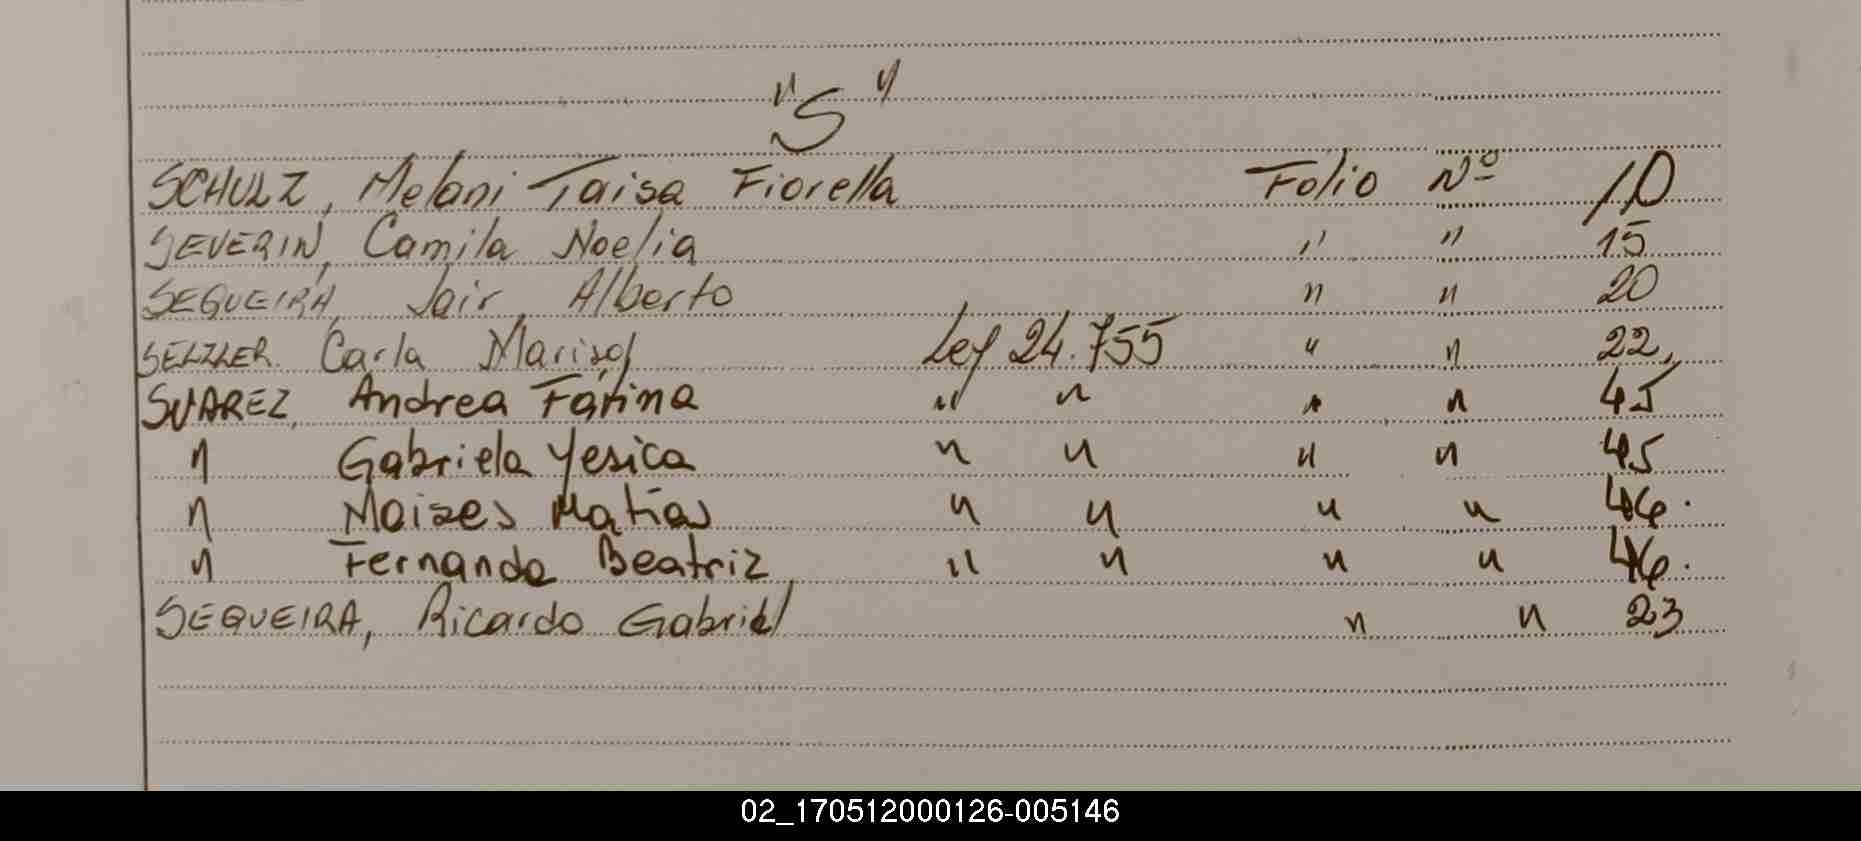 "S"
SCHULZ, Melani Taisa Fiorella Folio Nº 10
SEVERIN, Camila Noelia " " 15
SEQUEIRA, Jair Alberto " " 20
SELZLER. Carla Marisol Ley 24.755 " " 22,
SUAREZ, Andrea Fátima " " " " 45
" Gabriela Yesica " " " " 45
" Moises Matías " " " " 46.
" Fernanda Beatriz " " " " 46.
SEQUEIRA, Ricardo Gabriel " " 23
02_170512000126-005146